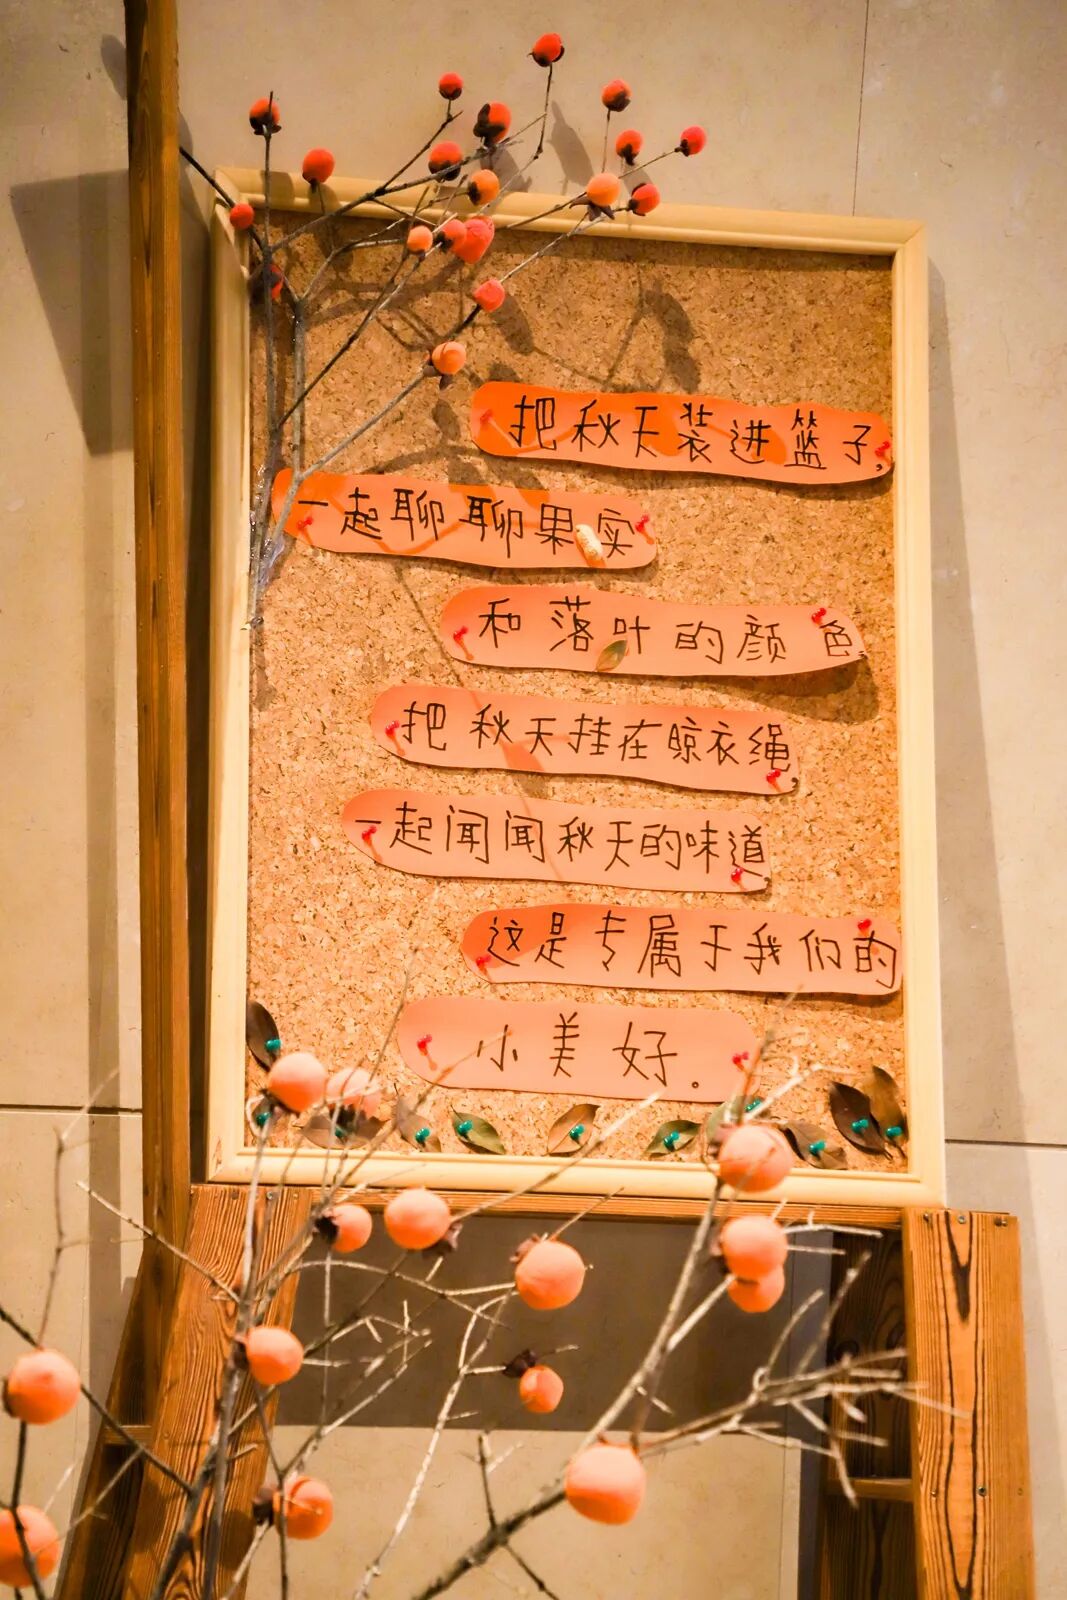 把秋天装进篮子,
一起聊聊果实
和落叶的颜色,
把秋天挂在晾衣绳,
一起闻闻秋天的味道,
这是专属于我们的
小美好。